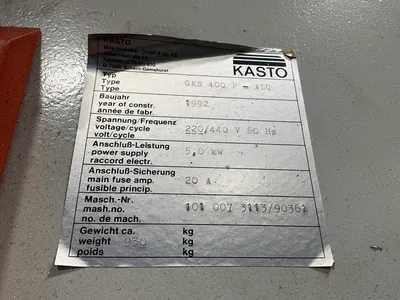 KASTO
KASTO
Typ
Type
Type
GKS 400 P - ALU
Baujahr
year of constr.
année de fabr.
1992
Spannung/Frequenz
voltage/cycle
volt/cycle
220/440 V 60 Hz
Anschluß-Leistung
power supply
raccord electr.
5,0 kW
Anschluß-Sicherung
main fuse amp.
fusible princip.
20 A.
Masch.-Nr.
mash.no.
no. de mach.
101 007 3113/90361
Gewicht ca. kg
weight 930 kg
poids kg